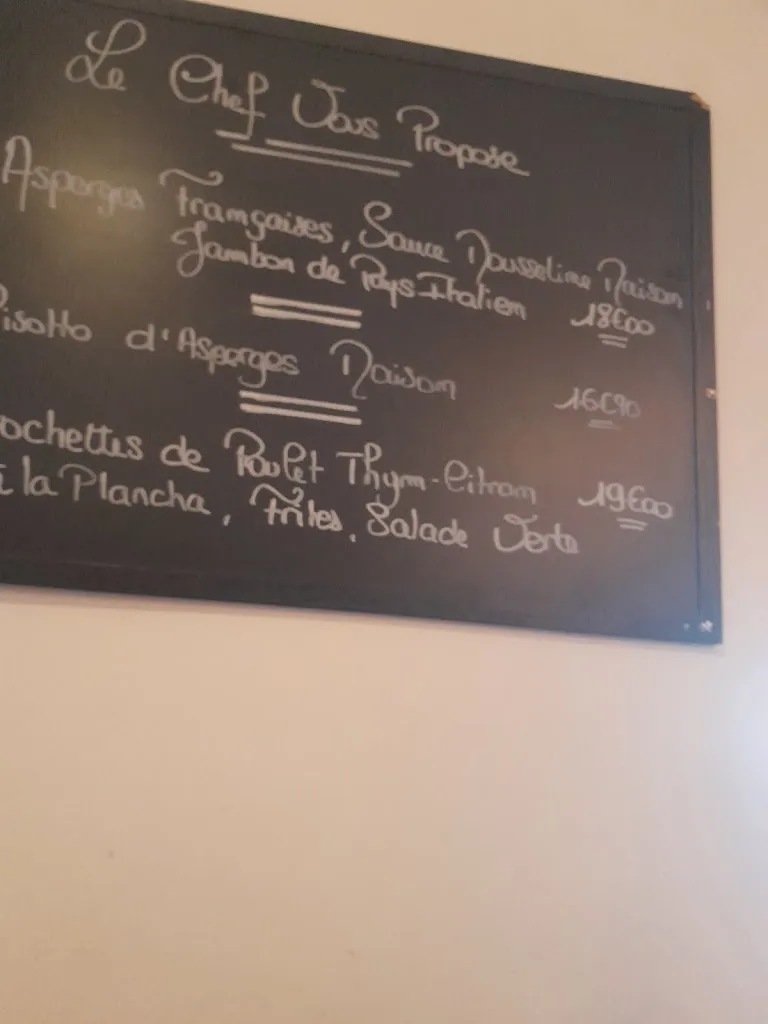 Le Chef Vous Propose
Asperges Françaises, Sauce Mousseline Maison
Jambon de Pays Italien 18€00
Risotto d'Asperges Maison 16€90
ochettes de Poulet Thym-Citron 19€00
à la Plancha, Frites, Salade Verte